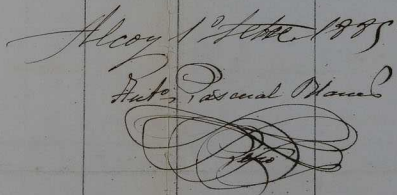 Alcoy 1º Setbre 1885
Antº Pascual Blanes